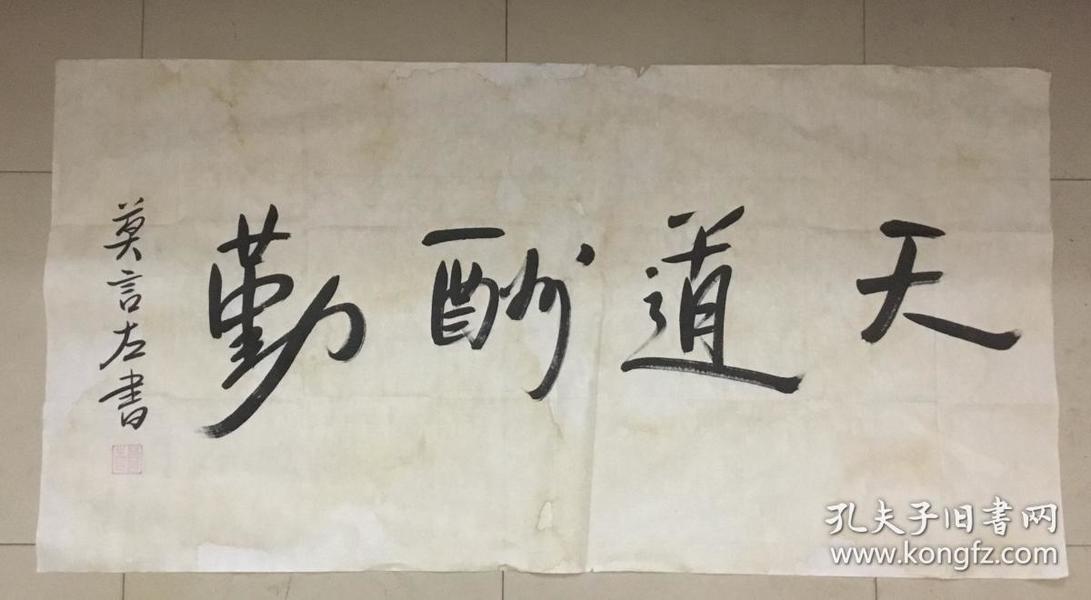 天道酬勤
莫言左書
孔夫子旧書网
www.kongfz.com